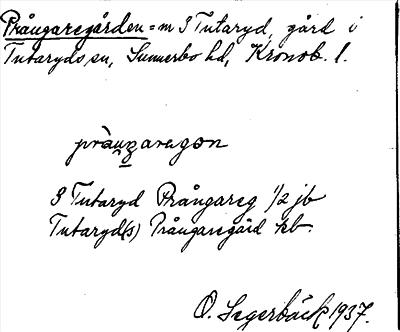 Prångaregården = nr 3 Tutaryd, gård i
Tutaryds sn, Sunnerbo hd, Kronob. l.
pràuṉz̰aregon
3 Tutaryd Prångareg 1/2 jb
Tutaryd(s) Prångaregård kb.
O. Segerbäck 1937.